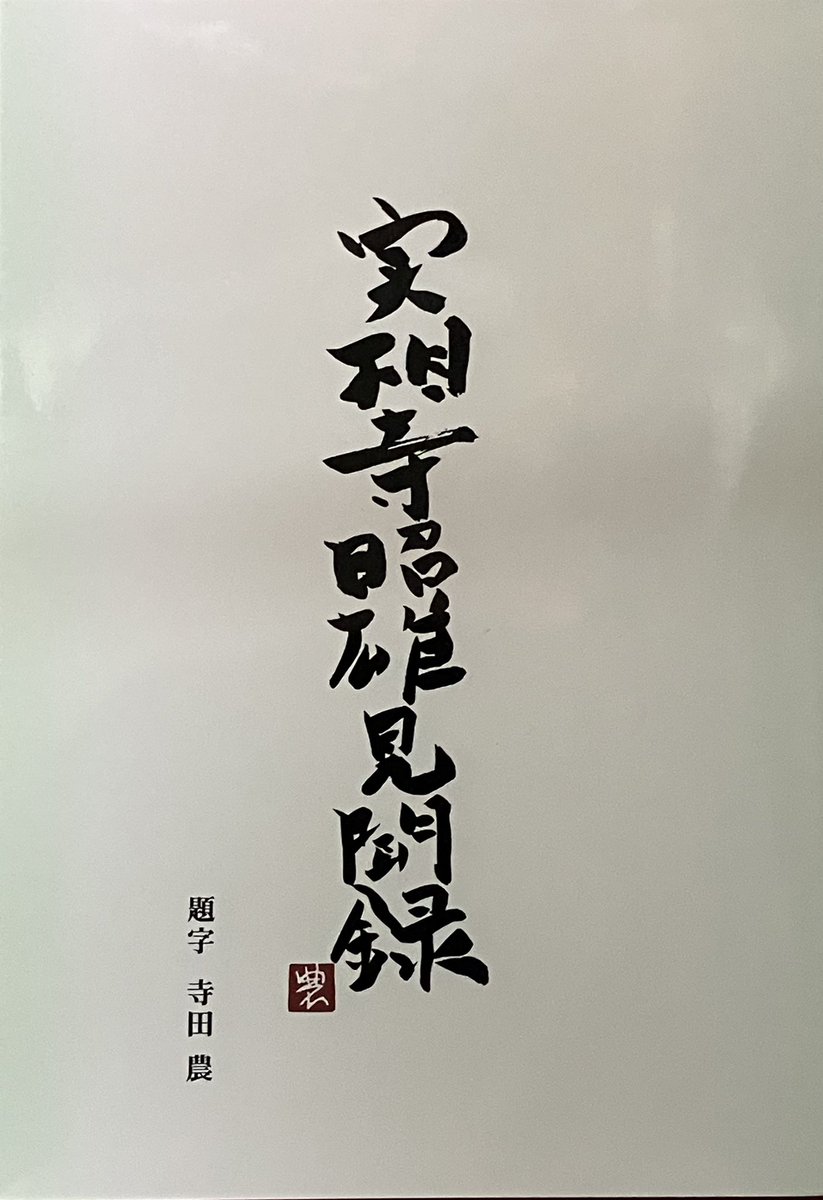 実相寺昭雄見聞録
農
題字 寺田 農